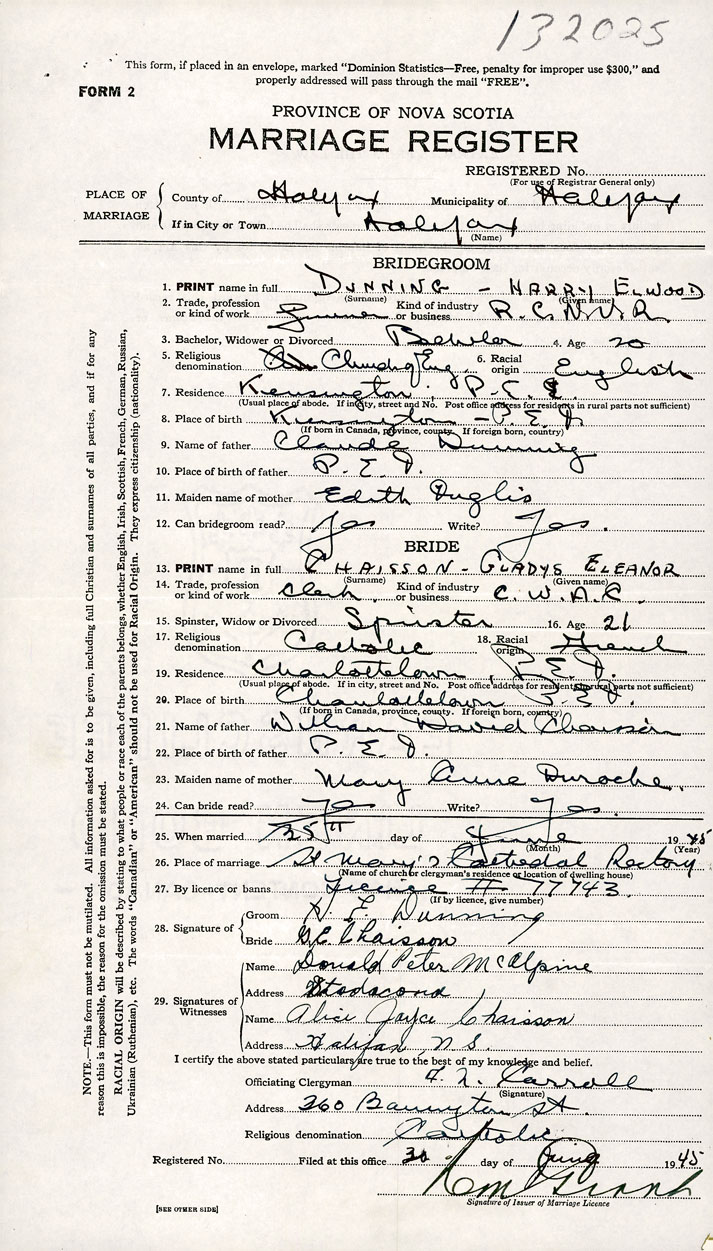 132025
This form, if placed in an envelope, marked "Dominion Statistics—Free, penalty for improper use $300," and
properly addressed will pass through the mail "FREE".
FORM 2
PROVINCE OF NOVA SCOTIA
MARRIAGE REGISTER
REGISTERED No.
(For use of Registrar General only)
PLACE OF MARRIAGE
County of Halifax Municipality of Halifax
If in City or Town Halifax
(Name)
BRIDEGROOM
1. PRINT name in full DUNNING - HARRY ELWOOD
(Surname) (Given name)
2. Trade, profession or kind of work Gunner Kind of industry or business R.C.N.V.R.
3. Bachelor, Widower or Divorced Bachelor 4. Age 20
5. Religious denomination Church of Eng. 6. Racial origin English
7. Residence Kensington, P.
(Usual place of abode. If in city, street and No. Post office address for residents in rural parts not sufficient)
8. Place of birth Kensington - P.E.I.
(If born in Canada, province, county. If foreign born, country)
9. Name of father Claude Dunning
10. Place of birth of father P.E.I.
11. Maiden name of mother Edith Inglis
12. Can bridegroom read? Yes Write? Yes.
BRIDE
13. PRINT name in full CHAISSON - GLADYS ELEANOR
(Surname) (Given name)
14. Trade, profession or kind of work Clerk Kind of industry or business C.W.A.C.
15. Spinster, Widow or Divorced Spinster 16. Age 21
17. Religious denomination Catholic 18. Racial origin French
19. Residence Charlottetown, P.E.I.
(Usual place of abode. If in city, street and No. Post office address for residents in rural parts not sufficient)
20. Place of birth Charlottetown P.E.I.
(If born in Canada, province, county. If foreign born, country)
21. Name of father William David Chaisson
22. Place of birth of father P.E.I.
23. Maiden name of mother Mary Anne Duroche.
24. Can bride read? Yes Write? Yes.
25. When married 25th day of June 1945
(Month) (Year)
26. Place of marriage St Mary's Cathedral Rectory
(Name of church or clergyman's residence or location of dwelling house)
27. By licence or banns Licence # 77743
(If by licence, give number)
28. Signature of
Groom H. E. Dunning
Bride G.E. Chaisson
29. Signatures of Witnesses
Name Donald Peter McAlpine
Address Stadacona
Name Alice Joyce Chaisson
Address Halifax N.S.
I certify the above stated particulars are true to the best of my knowledge and belief.
Officiating Clergyman Carroll
(Signature)
Address 260 Barrington St.
Religious denomination Catholic
Registered No. Filed at this office 30 day of June 1945
Grant
Signature of Issuer of Marriage Licence
[SEE OTHER SIDE]
NOTE.—This form must not be mutilated. All information asked for is to be given, including full Christian and surnames of all parties, and if for any
reason this is impossible, the reason for the omission must be stated.
RACIAL ORIGIN will be described by stating to what people or race each of the parents belongs, whether English, Irish, Scottish, French, German, Russian,
Ukrainian (Ruthenian), etc. The words "Canadian" or "American" should not be used for Racial Origin. They express citizenship (nationality).